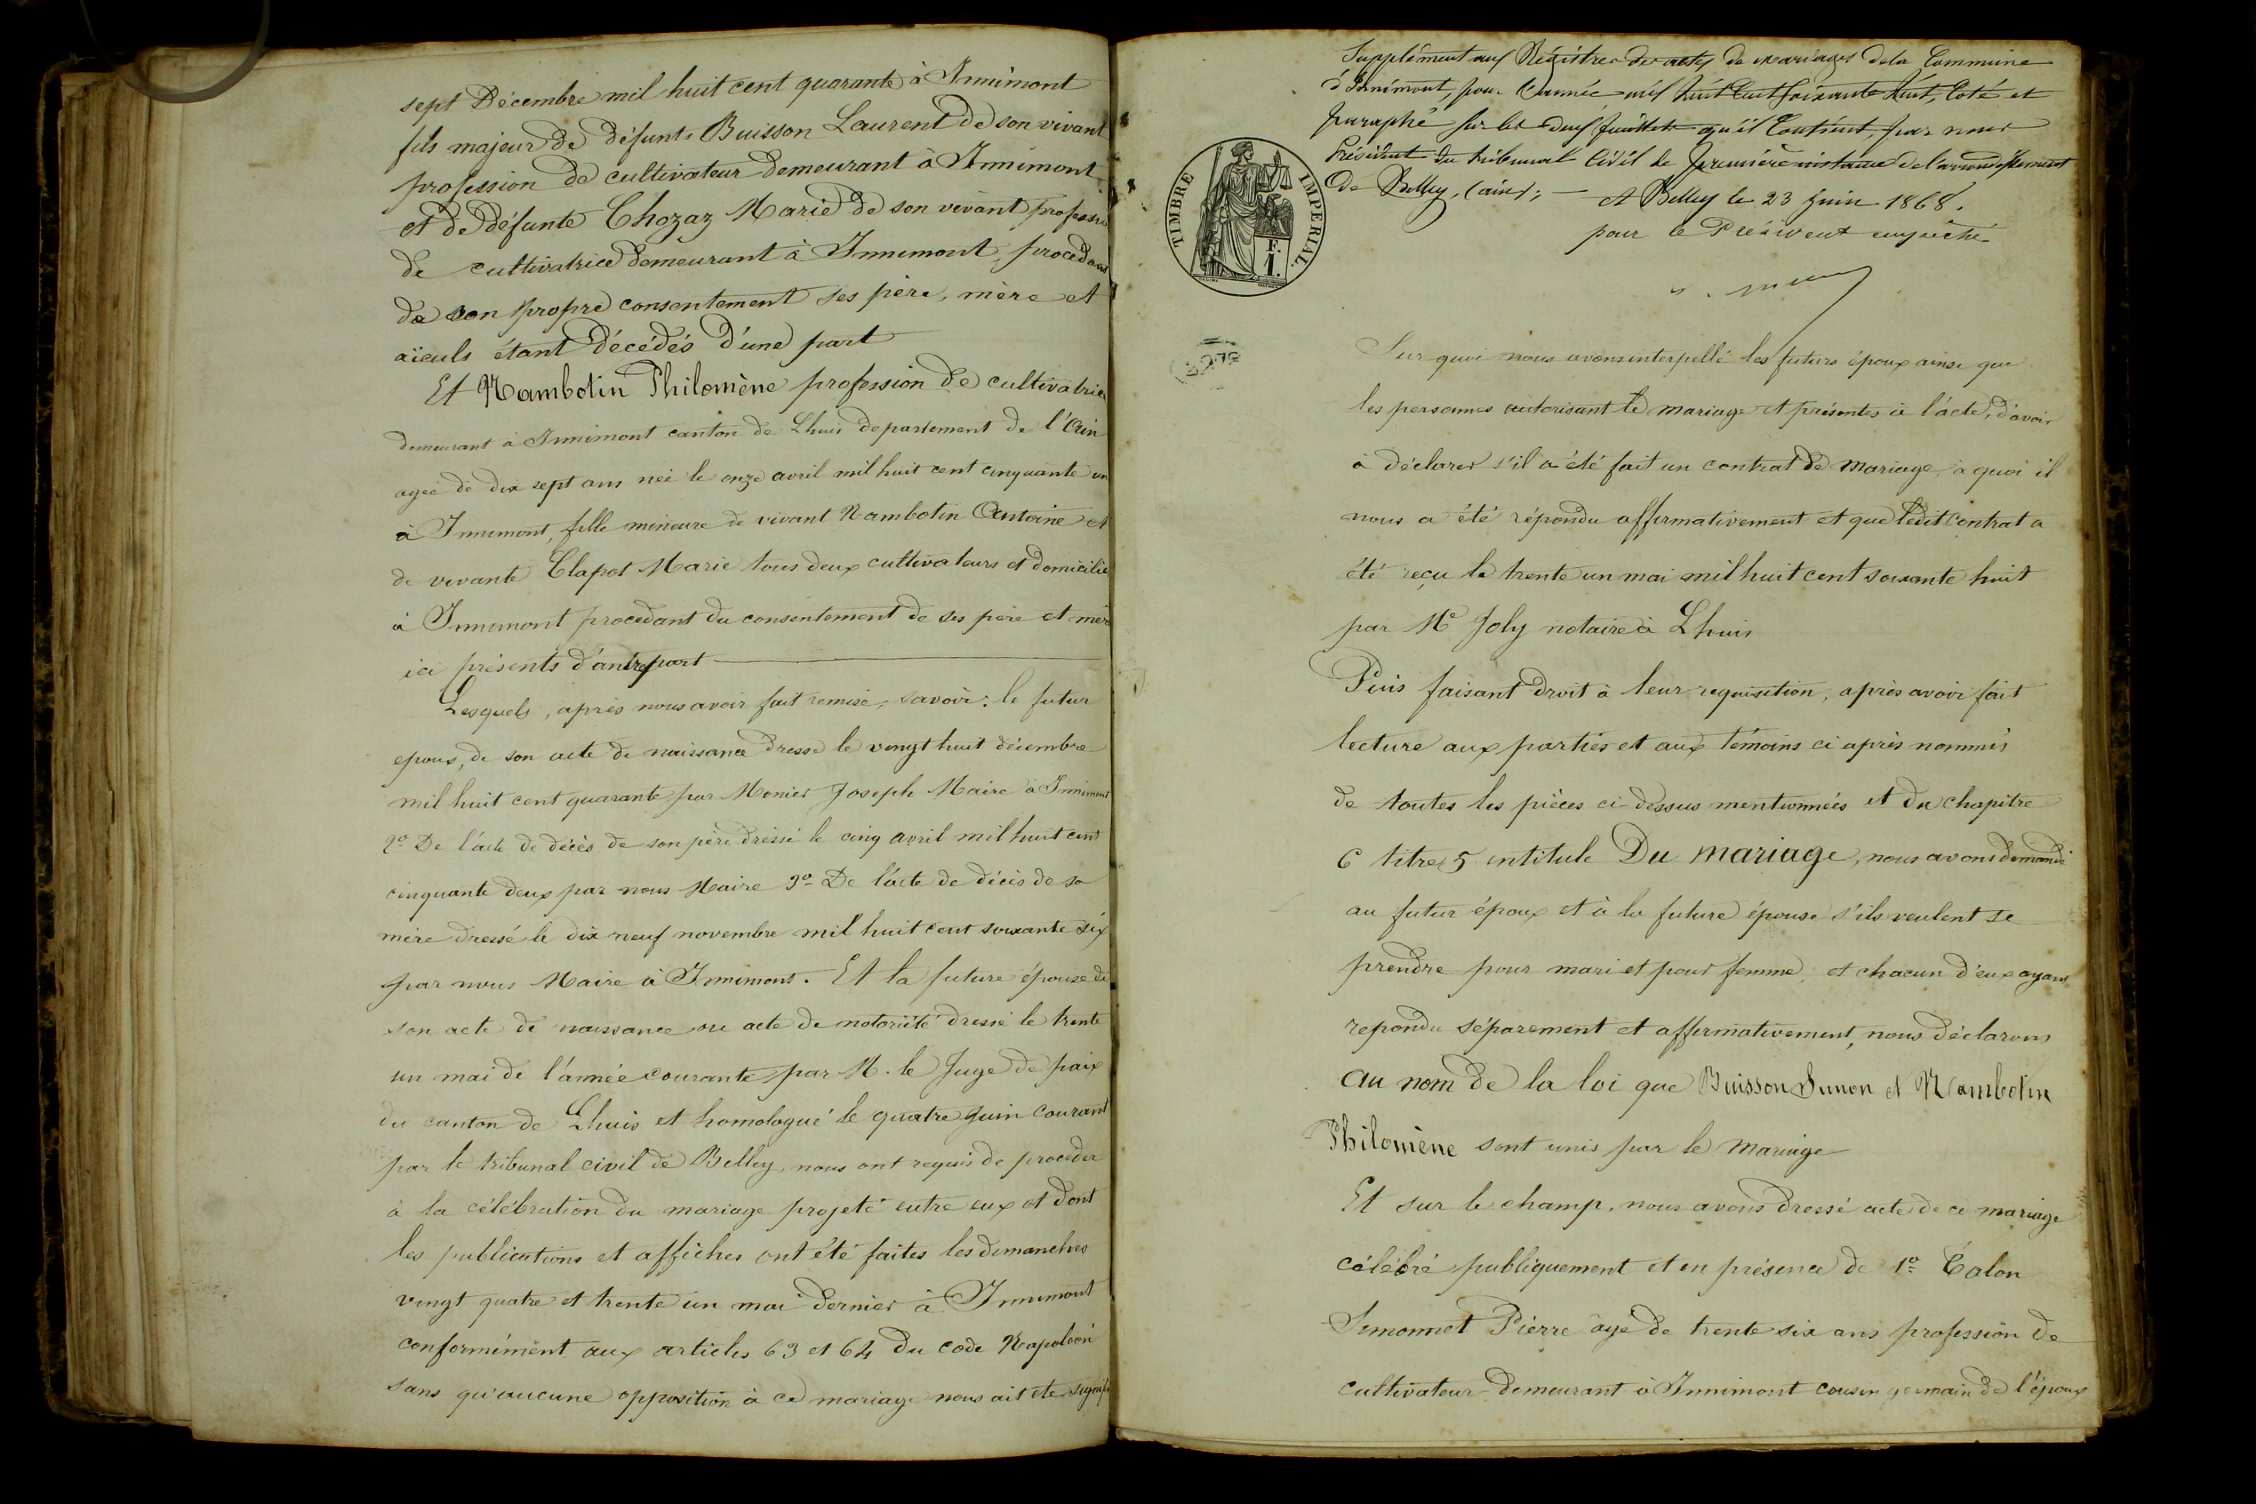 sept Décembre mil huit cent quarante à Innimont
fils majeur de défunt Buisson Laurent de son vivant
profession de cultivateur demeurant à Innimont
et de défunte Chozaz Marie de son vivant profession
de cultivatrice demeurant à Innimont, procédant
de son propre consentement ses père, mère et
aïeuls étant décédés d'une part
Et Nambotin Philomène profession de cultivatrice
demeurant à Innimont canton de Lhuis departement de l'Ain
agée de dix sept ans née le onze avril mil huit cent cinquante un
à Innimont, fille mineure de vivant Nambotin Antoine et
de vivante Clapot Marie tous deux cultivateurs et domicilié
à Innimont procedant du consentement de ses père et mère
ici présents d'autre part
Lesquels, après nous avoir fait remise, savoir: le futur
epoux, de son acte de naissance dressé le vingt huit décembre
mil huit cent quarante par Monier Joseph Maire à Innimont
2º De l'acte de décès de son père dressé le cinq avril mil huit cent
cinquante deux par nous Maire 3º De l'acte de décès de sa
mère dressé le dix neuf novembre mil huit cent soixante six
par nous Maire à Innimont. Et la future épouse de
son acte de naissance ou acte de notoriété dressé le trente
un mai de l'année courante par M. le Juge de paix
du canton de Lhuis et homologué le quatre juin courant
par le tribunal civil de Belley, nous ont requis de procéder
à la célébration du mariage projeté entre eux et dont
les publications et affiches ont été faites les dimanches
vingt quatre et trente un mai dernier à Innimont
conformément aux articles 63 et 64 du code Napoléon
sans qu'aucune opposition à ce mariage nous ait été signifié
Supplément aux Régistres des actes de mariages de la Commune
d'Innimont, pour l'année mil huit Cent soixante huit, Coté et
Paraphé sur les deux feuillets qu'il Contient, par nous
Président du tribunal Civil de première instance de l'arrondissement
De Belley, (ain); — A Belley le 23 juin 1868.
pour le Président empêché
TIMBRE IMPERIAL
Sur quoi nous avons interpellé les futurs époux ainsi que
les personnes autorisant le mariage et présentes à l'acte, d'avoir
à déclarer s'il a été fait un contrat de mariage, à quoi il
nous a été répondu affirmativement et que ledit Contrat a
été reçu le trente un mai mil huit cent soixante huit
par Me Joly notaire à Lhuis
Puis faisant droit à leur requisition, après avoir fait
lecture aux parties et aux témoins ci après nommés
de toutes les pièces ci-dessus mentionnées et du chapitre
6 titre 5 intitulé Du mariage, nous avons demandé
au futur époux et à la future épouse s'ils veulent se
prendre pour mari et pour femme, et chacun d'eux ayant
repondu séparement et affirmativement, nous déclarons
au nom de la loi que Buisson Simon et Nambotin
Philomène sont unis par le mariage
Et sur le champ, nous avons dressé acte de ce mariage
célébré publiquement et en présence de 1º Talon
Simonnet Pierre âgé de trente six ans profession de
cultivateur demeurant à Innimont cousin germain de l'époux